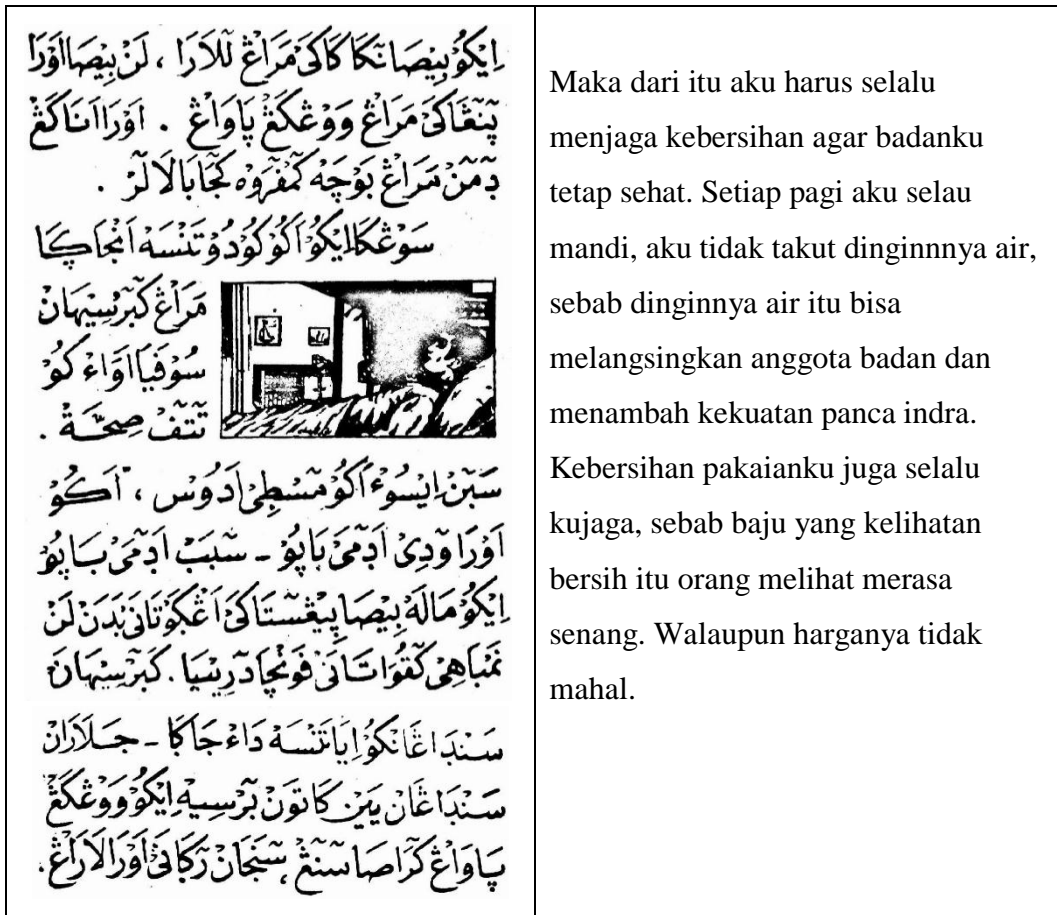 اِيْكُوْ بِيْصَا نٓكَا كَاكَيْ مَرَاڠْ لٓلَارَا ، لَنْ بِيْصَا اَوْرَا
پٓنٓڠَاكَيْ مَرَاڠْ وَوْڠْكَڠْ پَاوَاڠْ . اَوْرَا اَنَاكَڠْ
دٓمٓنْ مَرَاڠْ بَوْچَهْ كٓمْڤْرَوْه كٓجَابَا لَالٓرْ .
سَوْڠْكَا اِيْكُوْ اَكُوْ كُوْدُوْ تَنْسَهْ اَنْجَاڮَا
مَرَاڠْ كَبٓرْسِيْهَانْ
سُوْفَيَا اَوَاءْ كُوْ
تٓتٓفْ صِحَّةْ .
سَبٓنْ اِيْسُوْءْ اَكُوْ مٓسْطِيْ اَدُوْس ، اَكُوْ
اَوْرَا وٓدِيْ اَدٓمَيْ بَاپُوْ ـ سٓبَبْ اَدٓمَيْ بَاپُوْ
اِيْكُوْ مَالَهْ بِيْصَا پِيْڠْسٓتَاكَيْ اَڠْكَوْتَانَيْ بَدَنْ لَنْ
نَمْبَاهِيْ كٓقُوَاتَانَيْ فَوْنْچَا دْرِيْيَا . كَبٓرْسِيْهَانَيْ
سَنْدَاڠَانْكُوْ اِيَا تَنْسَهْ دَاءْ جَاڮَا ـ جَلَارَانْ
سَنْدَاڠَانْ يَيْنْ كَاتَوْنْ بٓرْسِيْهْ اِيْكُوْ وَوْڠْكَڠْ
پَاوَاڠْ كْرَاصَا سٓنٓڠْ ، سٓنَجَانْ رٓڮَانَيْ اَوْرَا لَارَاڠْ.
Maka dari itu aku harus selalu
menjaga kebersihan agar badanku
tetap sehat. Setiap pagi aku selau
mandi, aku tidak takut dinginnnya air,
sebab dinginnya air itu bisa
melangsingkan anggota badan dan
menambah kekuatan panca indra.
Kebersihan pakaianku juga selalu
kujaga, sebab baju yang kelihatan
bersih itu orang melihat merasa
senang. Walaupun harganya tidak
mahal.